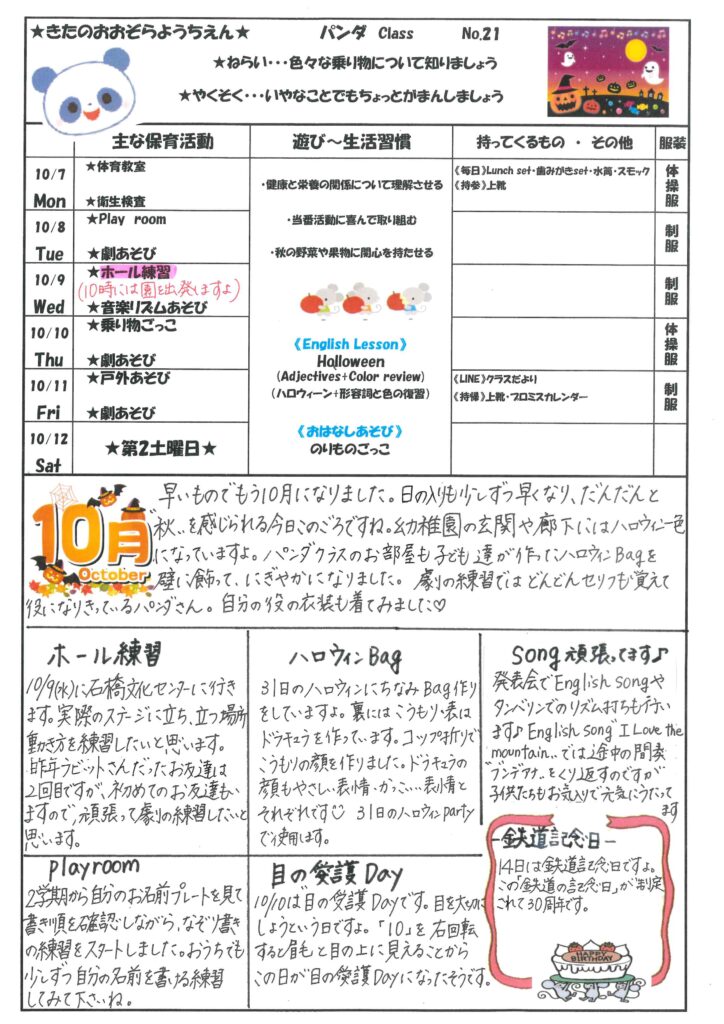 ★きたのおおぞらようちえん★ パンダ Class No.21
★ねらい・・・色々な乗り物について知りましょう
★やくそく・・・いやなことでもちょっとがまんしましょう
主な保育活動 遊び～生活習慣 持ってくるもの ・ その他 服装
10/7 Mon
★体育教室
★衛生検査
《毎日》Lunch set・歯みがきset・水筒・スモック
《持参》上靴
体操服
10/8 Tue
★Play room
★劇あそび
制服
10/9 Wed
★ホール練習
(10時には園を出発しますよ)
★音楽リズムあそび
制服
10/10 Thu
★乗り物ごっこ
★劇あそび
体操服
10/11 Fri
★戸外あそび
★劇あそび
《LINE》クラスだより
《持帰》上靴・プロミスカレンダー
制服
10/12 Sat
★第2土曜日★
・健康と栄養の関係について理解させる
・当番活動に喜んで取り組む
・秋の野菜や果物に関心を持たせる
《English Lesson》
Halloween
(Adjectives+Color review)
(ハロウィーン+形容詞と色の復習)
《おはなしあそび》
のりものごっこ
10月
October
早いものでもう10月になりました。日の入りも少しずつ早くなり、だんだんと
"秋"を感じられる今日このごろですね。幼稚園の玄関や廊下にはハロウィン一色
になっていますよ。パンダクラスのお部屋も子ども達が作ったハロウィンBagを
壁に飾って、にぎやかになりました。劇の練習ではどんどんセリフも覚えて
役になりきっているパンダさん。自分の役の衣装も着てみました♡
ホール練習
10/9(水)に石橋文化センターに行き
ます。実際のステージに立ち、立つ場所
動き方を練習したいと思います。
昨年ラビットさんだったお友達は
2回目ですが、初めてのお友達もい
ますので、頑張って劇の練習したいと
思います。
ハロウィンBag
31日のハロウィンにちなみBag作り
をしていますよ。裏にはこうもり・表は
ドラキュラを作っています。コップ折りで
こうもりの顔を作りました。ドラキュラの
顔もやさしい表情・かっこいい表情と
それぞれです☺ 31日のハロウィンparty
で使用します。
Song頑張ってます♪
発表会でEnglish songや
タンバリンでのリズム打ちも行い
ます♪English song"I Love the
mountain"では途中の間奏
"ブンデアダ"をくり返すのですが
子供たちもお気入りで元気にうたって
ます
playroom
2学期から自分のお名前プレートを見て
書き順を確認しながら、なぞり書き
の練習をスタートしました。おうちでも
少しずつ自分の名前を書ける練習
してみて下さいね。
目の愛護Day
10/10は"目の愛護Dayです。目を大切に
しようという日ですよ。「10」を右回転
すると眉毛と目の上に見えることから
この日が目の愛護Dayになったそうです。
-鉄道記念日-
14日は鉄道記念日ですよ。
この「鉄道の記念日」が制定
されて30周年です。
HAPPY
BIRTHDAY